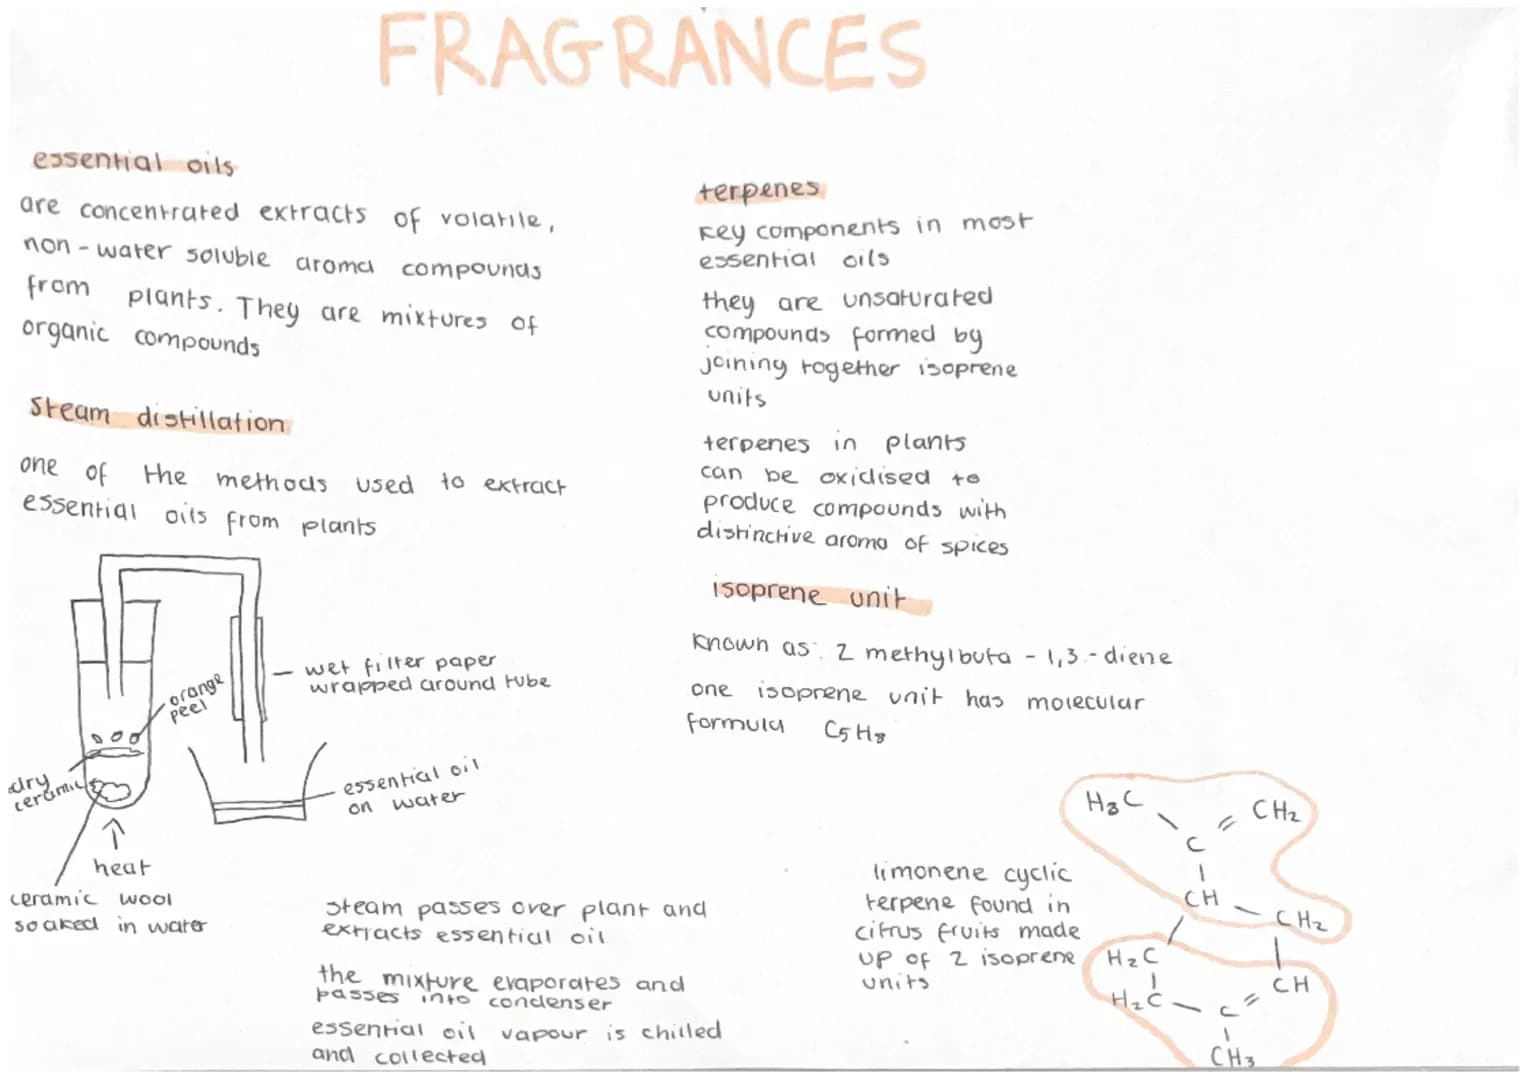 FRAGRANCES
essential oils
are concentrated extracts of volatile,
non - water soluble aroma compounds
from plants. They are mixtures of
organic compounds
Steam distillation
one of the methods used to extract
essential oils from plants
orange
peel
wet filter paper
wrapped around tube
dry
ceramic
essential oil
on water
heat
ceramic wool
soaked in water
steam passes over plant and
extracts essential oil
the mixture evaporates and
passes into condenser
essential oil vapour is chilled
and collected
terpenes
key components in most
essential oils
they are unsaturated
compounds formed by
joining together isoprene
units
terpenes in plants
can be oxidised to
produce compounds with
distinctive aroma of spices
isoprene unit
Known as: 2 methylbuta - 1,3 - diene
one isoprene unit has molecular
formula C₅H₈
limonene cyclic
terpene found in
citrus fruits made
up of 2 isoprene
units
H₃C
CH₂
C
CH
CH₂
H₂C
CH
H₂C
C
CH₃